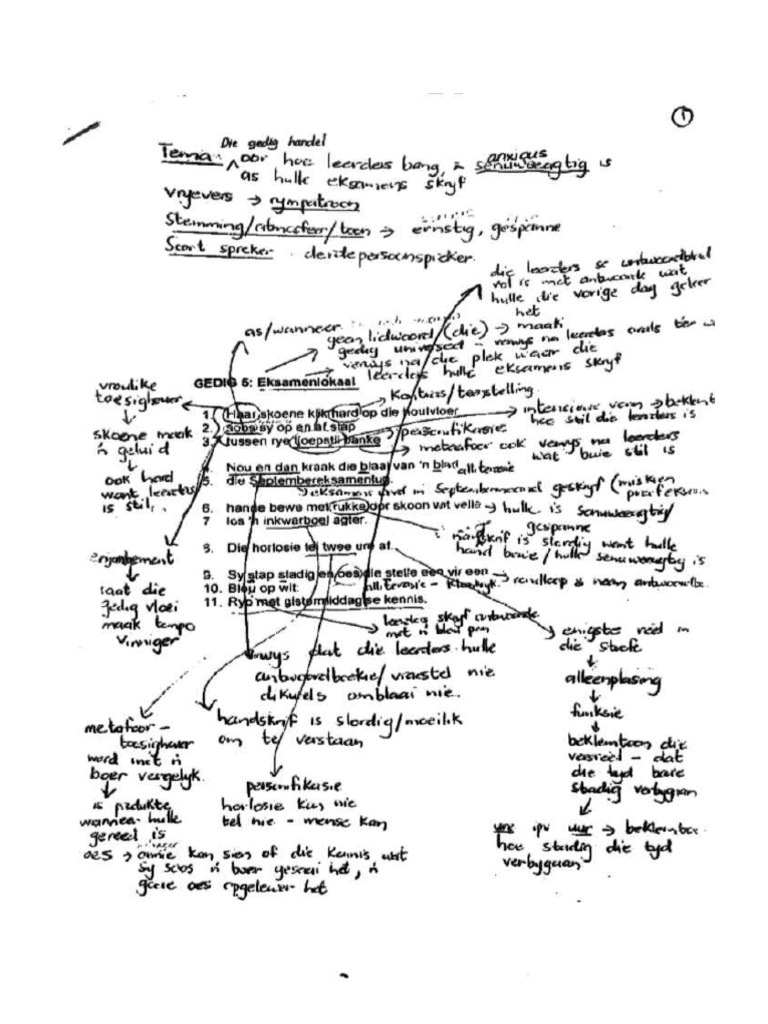 1
Die gedig handel
Tema: oor hoe leerders bang, & anxious senuweeagtig is
as hulle eksamens skryf
Vryevers → rympatroon
Stemming/atmosfeer/toon → ernstig, gespanne
Soort spreker - derdepersoonspreker.
die leerders se antwoordblad
vol is met antwoorde wat
hulle die vorige dag geleer
het
as/wanneer
geen lidwoord (die) → maak
gedig universeel - verwys na leerders oral
verwys na die plek waar die
leerders hulle eksamens skryf
GEDIG 6: Eksamenlokaal
Kontras/teenstelling
vroulike
toesighouer
skoene maak
'n geluid
ook hard
want leerders
is stil
1. Haar skoene klik hard op die houtvloer
2. soos sy op en af stap
3. tussen rye tjoepstil banke
intensiewe vorm → beklem
hoe stil die leerders is
personifikasie
metafoor ook verwys na leerders
wat baie stil is
4. Nou en dan kraak die blaai van 'n blad
alliterasie
5. die Septembereksamen
eksamen word in September geskryf
6. hande bewe met rukke oor skoon wit velle
hulle is senuweeagtig/
gespanne
7 los 'n inkwarboel agter.
handskrif is slordig want hulle
hand bewe/hulle senuweeagtig is
8. Die horlosie tel twee uni af.
9. Sy stap stadig en oes die stelle een vir een
10. Blou op wit:
alliterasie
11. Ryp met gistermiddag se kennis.
enjambement
laat die
gedig vloei
maak tempo
vinniger
leerders skryf antwoorde
met 'n blou pen
wys dat die leerders hulle
antwoordboekie/vraestel nie
dikwels omblaai nie.
handskrif is slordig/moeilik
om te verstaan
enigste reël in
die strofe
alleenplasing
funksie
beklemtoon die
versreël - dat
die tyd baie
stadig verbygaan
uni ipv uur →
hoe stadig die tyd
verbygaan
metafoor -
toesighouer
word met 'n
boer vergelyk.
is produkte
wanneer hulle
gereed is
oes → kan sien of die kennis wat
sy soos 'n boer gesaai het, 'n
goeie oes opgelewer het
personifikasie
horlosie kan nie
tel nie - mense kan